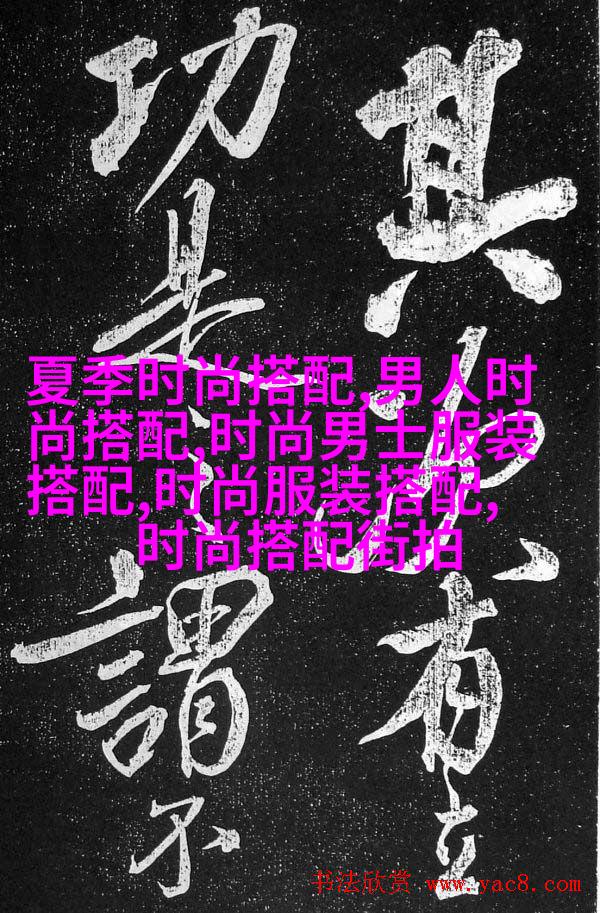 其次有立
功是謂不
夏季时尚搭配,男人时
尚搭配,时尚男士服装
搭配,时尚服装搭配,
时尚搭配街拍
书法欣赏 www.yac8.com